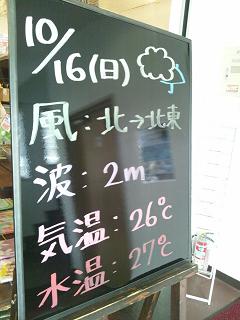 10/16(日)
風:北→北東
波:2m
気温:26℃
水温:27℃